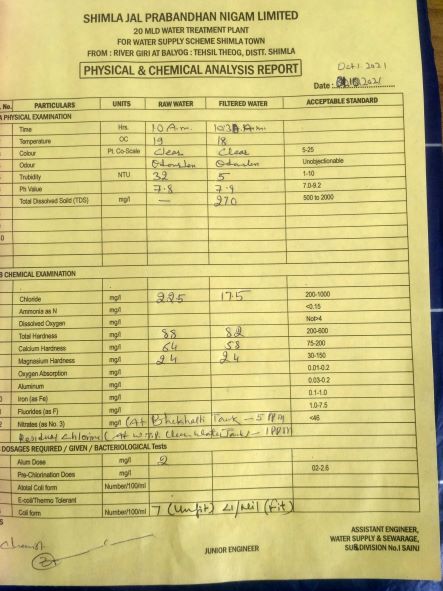 SHIMLA JAL PRABANDHAN NIGAM LIMITED
20 MLD WATER TREATMENT PLANT
FOR WATER SUPPLY SCHEME SHIMLA TOWN
FROM : RIVER GIRI AT BALYOG : TEHSIL THEOG, DISTT. SHIMLA
PHYSICAL & CHEMICAL ANALYSIS REPORT
Oct 1. 2021
Date : 10 2021
. No. PARTICULARS UNITS RAW WATER FILTERED WATER ACCEPTABLE STANDARD
A PHYSICAL EXAMINATION
Time Hrs. 10 A.m.
Temperature OC 19 18
Colour Pt. Co-Scale Clear Clear 5-25
Odour Unobjectionable
Trubidity NTU 32 5 1-10
Ph Value 7.8 7.9 7.0-9.2
Total Dissolved Solid (TDS) mg/l — 270 500 to 2000
0
B CHEMICAL EXAMINATION
Chloride mg/l 22.5 17.5 200-1000
Ammonia as N mg/l <0.15
Dissolved Oxygen mg/l Not>4
Total Hardness mg/l 88 82 200-600
Calcium Hardness mg/l 64 58 75-200
Magnasium Hardness mg/l 24 24 30-150
Oxygen Absorption mg/l 0.01-0.2
Aluminum mg/l 0.03-0.2
0 Iron (as Fe) mg/l 0.1-1.0
1 Fluorides (as F) mg/l 1.0-7.5
2 Nitrates (as No. 3) mg/l (At Tank - 5 PPM <46
Residual Chlorine (At W.T.P. Clear Water Tank) - 1 PPM
DOSAGES REQUIRED / GIVEN / BACTERIOLOGICAL Tests
Alum Dose mg/l 2
Pre-Chlorination Does mg/l 02-2.6
Atotal Coli form Number/100/ml
E-coli/Thermo Tolerant
Coli form Number/100/ml 7 (Unfit) Nil (fit)
S
Chemist
JUNIOR ENGINEER
ASSISTANT ENGINEER,
WATER SUPPLY & SEWARAGE,
SUBDIVISION No.I SAINJ